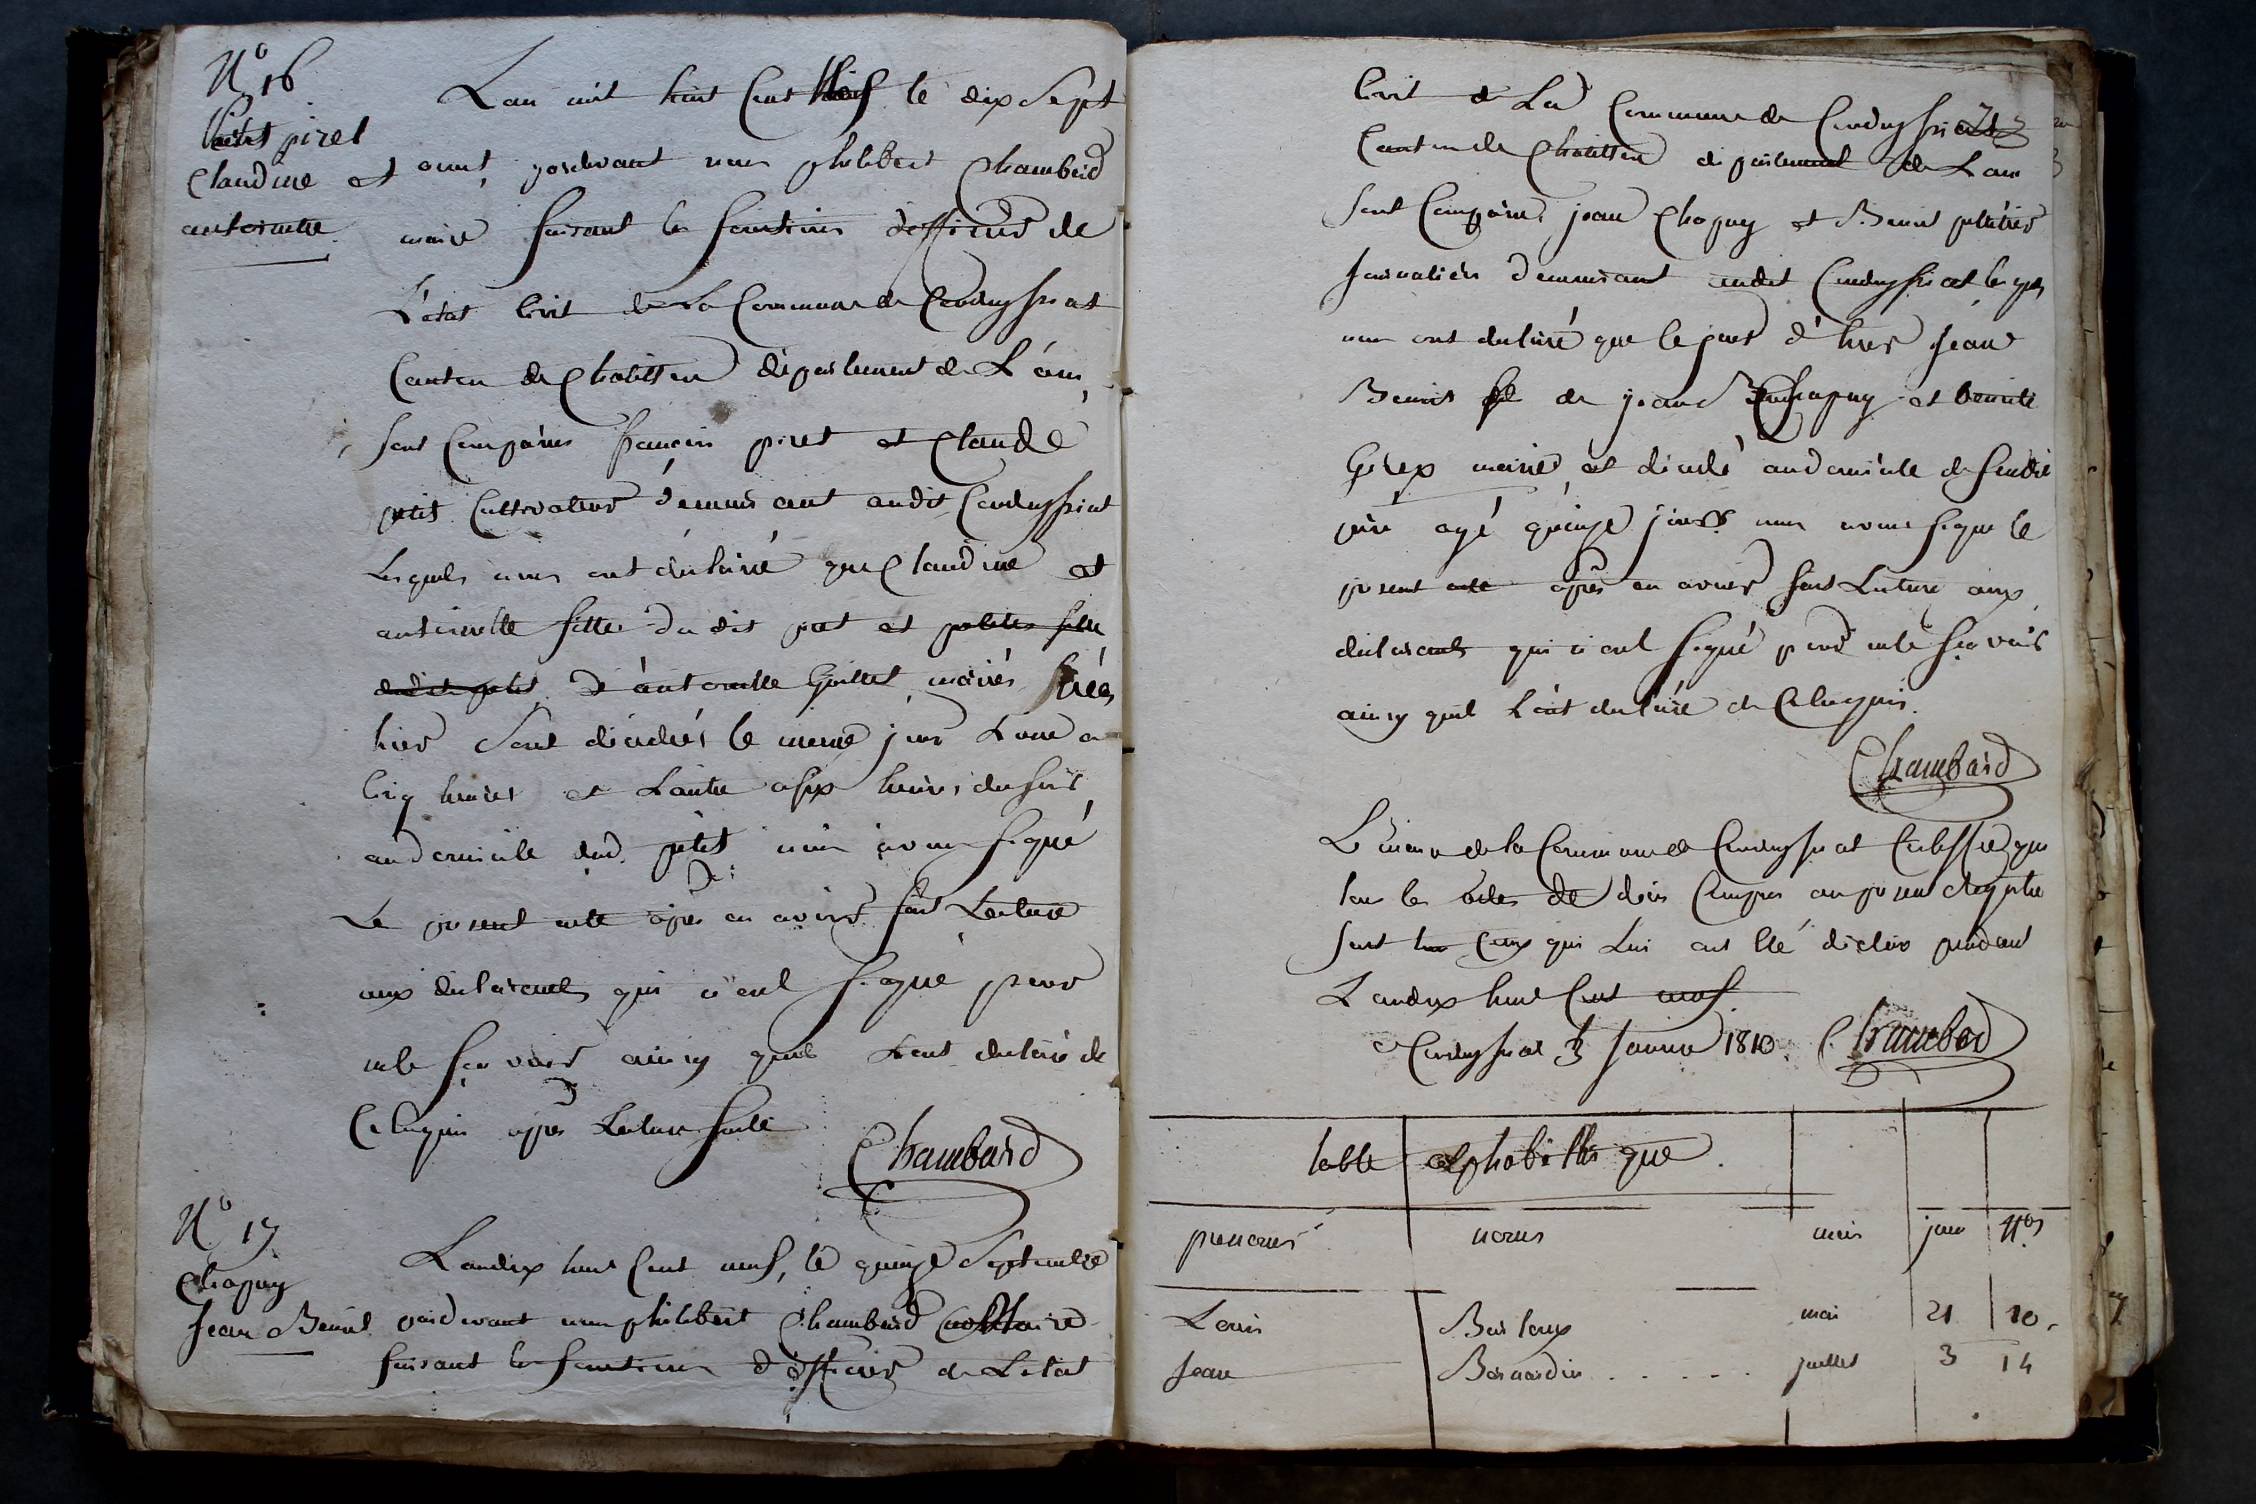 N° 16
piret
Claudine et
antoinette
Lan mil huit Cent neuf le dix Sept
aout, pardevant nous philibert Chambard
maire faisant les fonctions dofficier de
L'état Civil de La Commune de Condeyssiat
Canton de Chatillon département de L'ain,
Sont Comparus françois piret et Claude
petit Cultivateur demeurant audit Condeyssiat
Lesquels nous ont déclaré que Claudine et
antoinette fille du dit piret et petites filles
dudit petit d'antoinette Guillet mariés
hier Sont décédés le meme jour L'une a
Cinq heures et L'autre a Six heures du soir
au domicile dud. petit nous avons signé
Le present acte apres en avoir fait Lecture
aux declarants qui n'ont Signé pour
ne le Sçavoir ainsy quils L'ont declaré de
Ce Requis apres Lecture faite
Chambard
N° 17
Chapuy
Jean Benoit
Landix huit Cent neuf, le quinze Septembre
pardevant nous philibert Chambard maire
faisant les fonctions d'officier de L'etat
Civil de La Commune de Condeyssiat
Canton de Chatillon département de L'ain
Sont Comparus jean Chapuy et Benoit
Journaliers demeurant audit Condeyssiat lesquels
nous ont declaré que le jour d'hier Jean
Benoit fil de jean Chapuy et benoite
mariés est décédé au domicile de Sondit
pere agé quinze jours nous avons Signé le
present acte apres en avoir fait Lecture aux
declarants qui n'ont Signé pour ne le Sçavoir
ainsy quil L'ont declaré de Ce Requis.
Chambard
Le maire de la Commune de Condeyssiat Certiffie que
tous les actes de deces Compris au present Registre
Sont tous Ceux qui Lui ont été déclaré pendant
L'andix huit Cent neuf
a Condeyssiat 3 Janvier 1810. Chambard
table alphabettique.
prenoms noms mois jour Nos
Louis Barloux mai 21 10.
Jean Bernardin . . . . . juillet 3 14